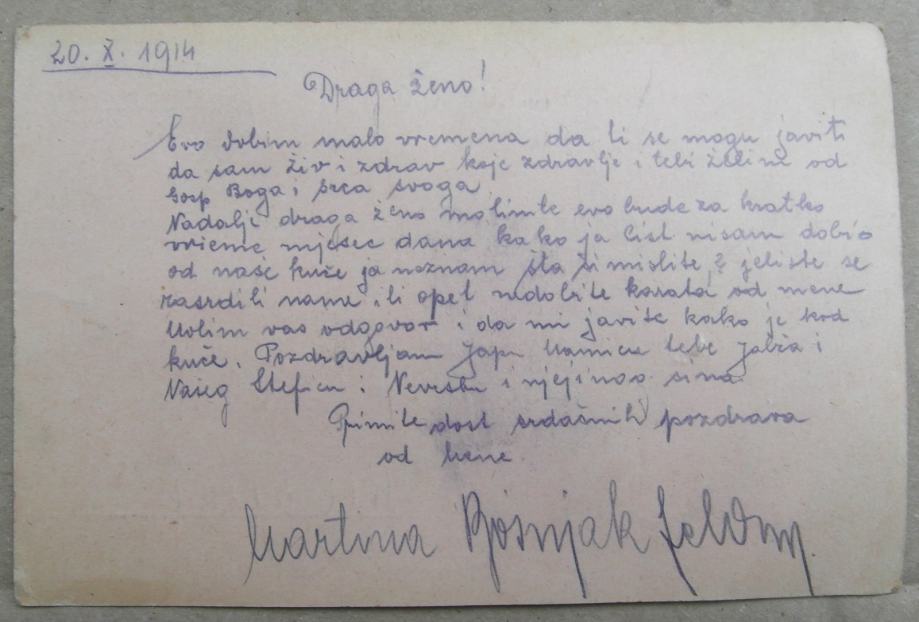 20. X. 1914
Draga ženo!
Evo dobim malo vremena da ti se mogu javiti
da sam živ i zdrav koje zdravlje i tebi želim od
Gosp Boga i srca svoga
Nadalje draga ženo molimte evo bude za kratko
vrieme mjesec dana kako ja list nisam dobio
od naše kuće ja neznam šta vi mislite? jeliste se
rasrdili name ili opet nedobite karata od mene
Molim vas odgovor i da mi javite kako je kod
kuće. Pozdravljam Japu Mamicu tebe i
Našeg Steficu i Nevestu i njejinoo sina
Primite dost srdačnih pozdrava
od mene
Martina Bošnjak